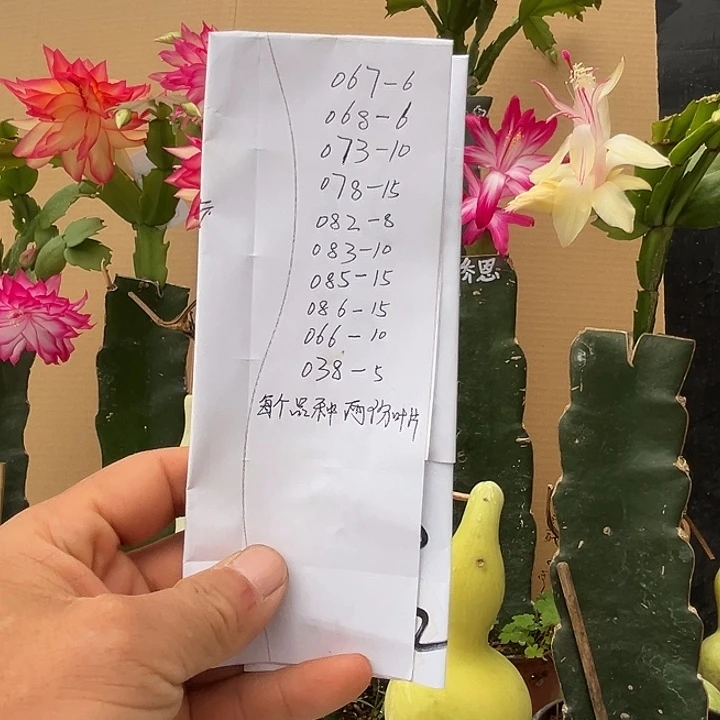 067-6
068-6
073-10
078-15
082-8
083-10
085-15
086-15
066-10
038-5
每个品种两份叶片
秀恩